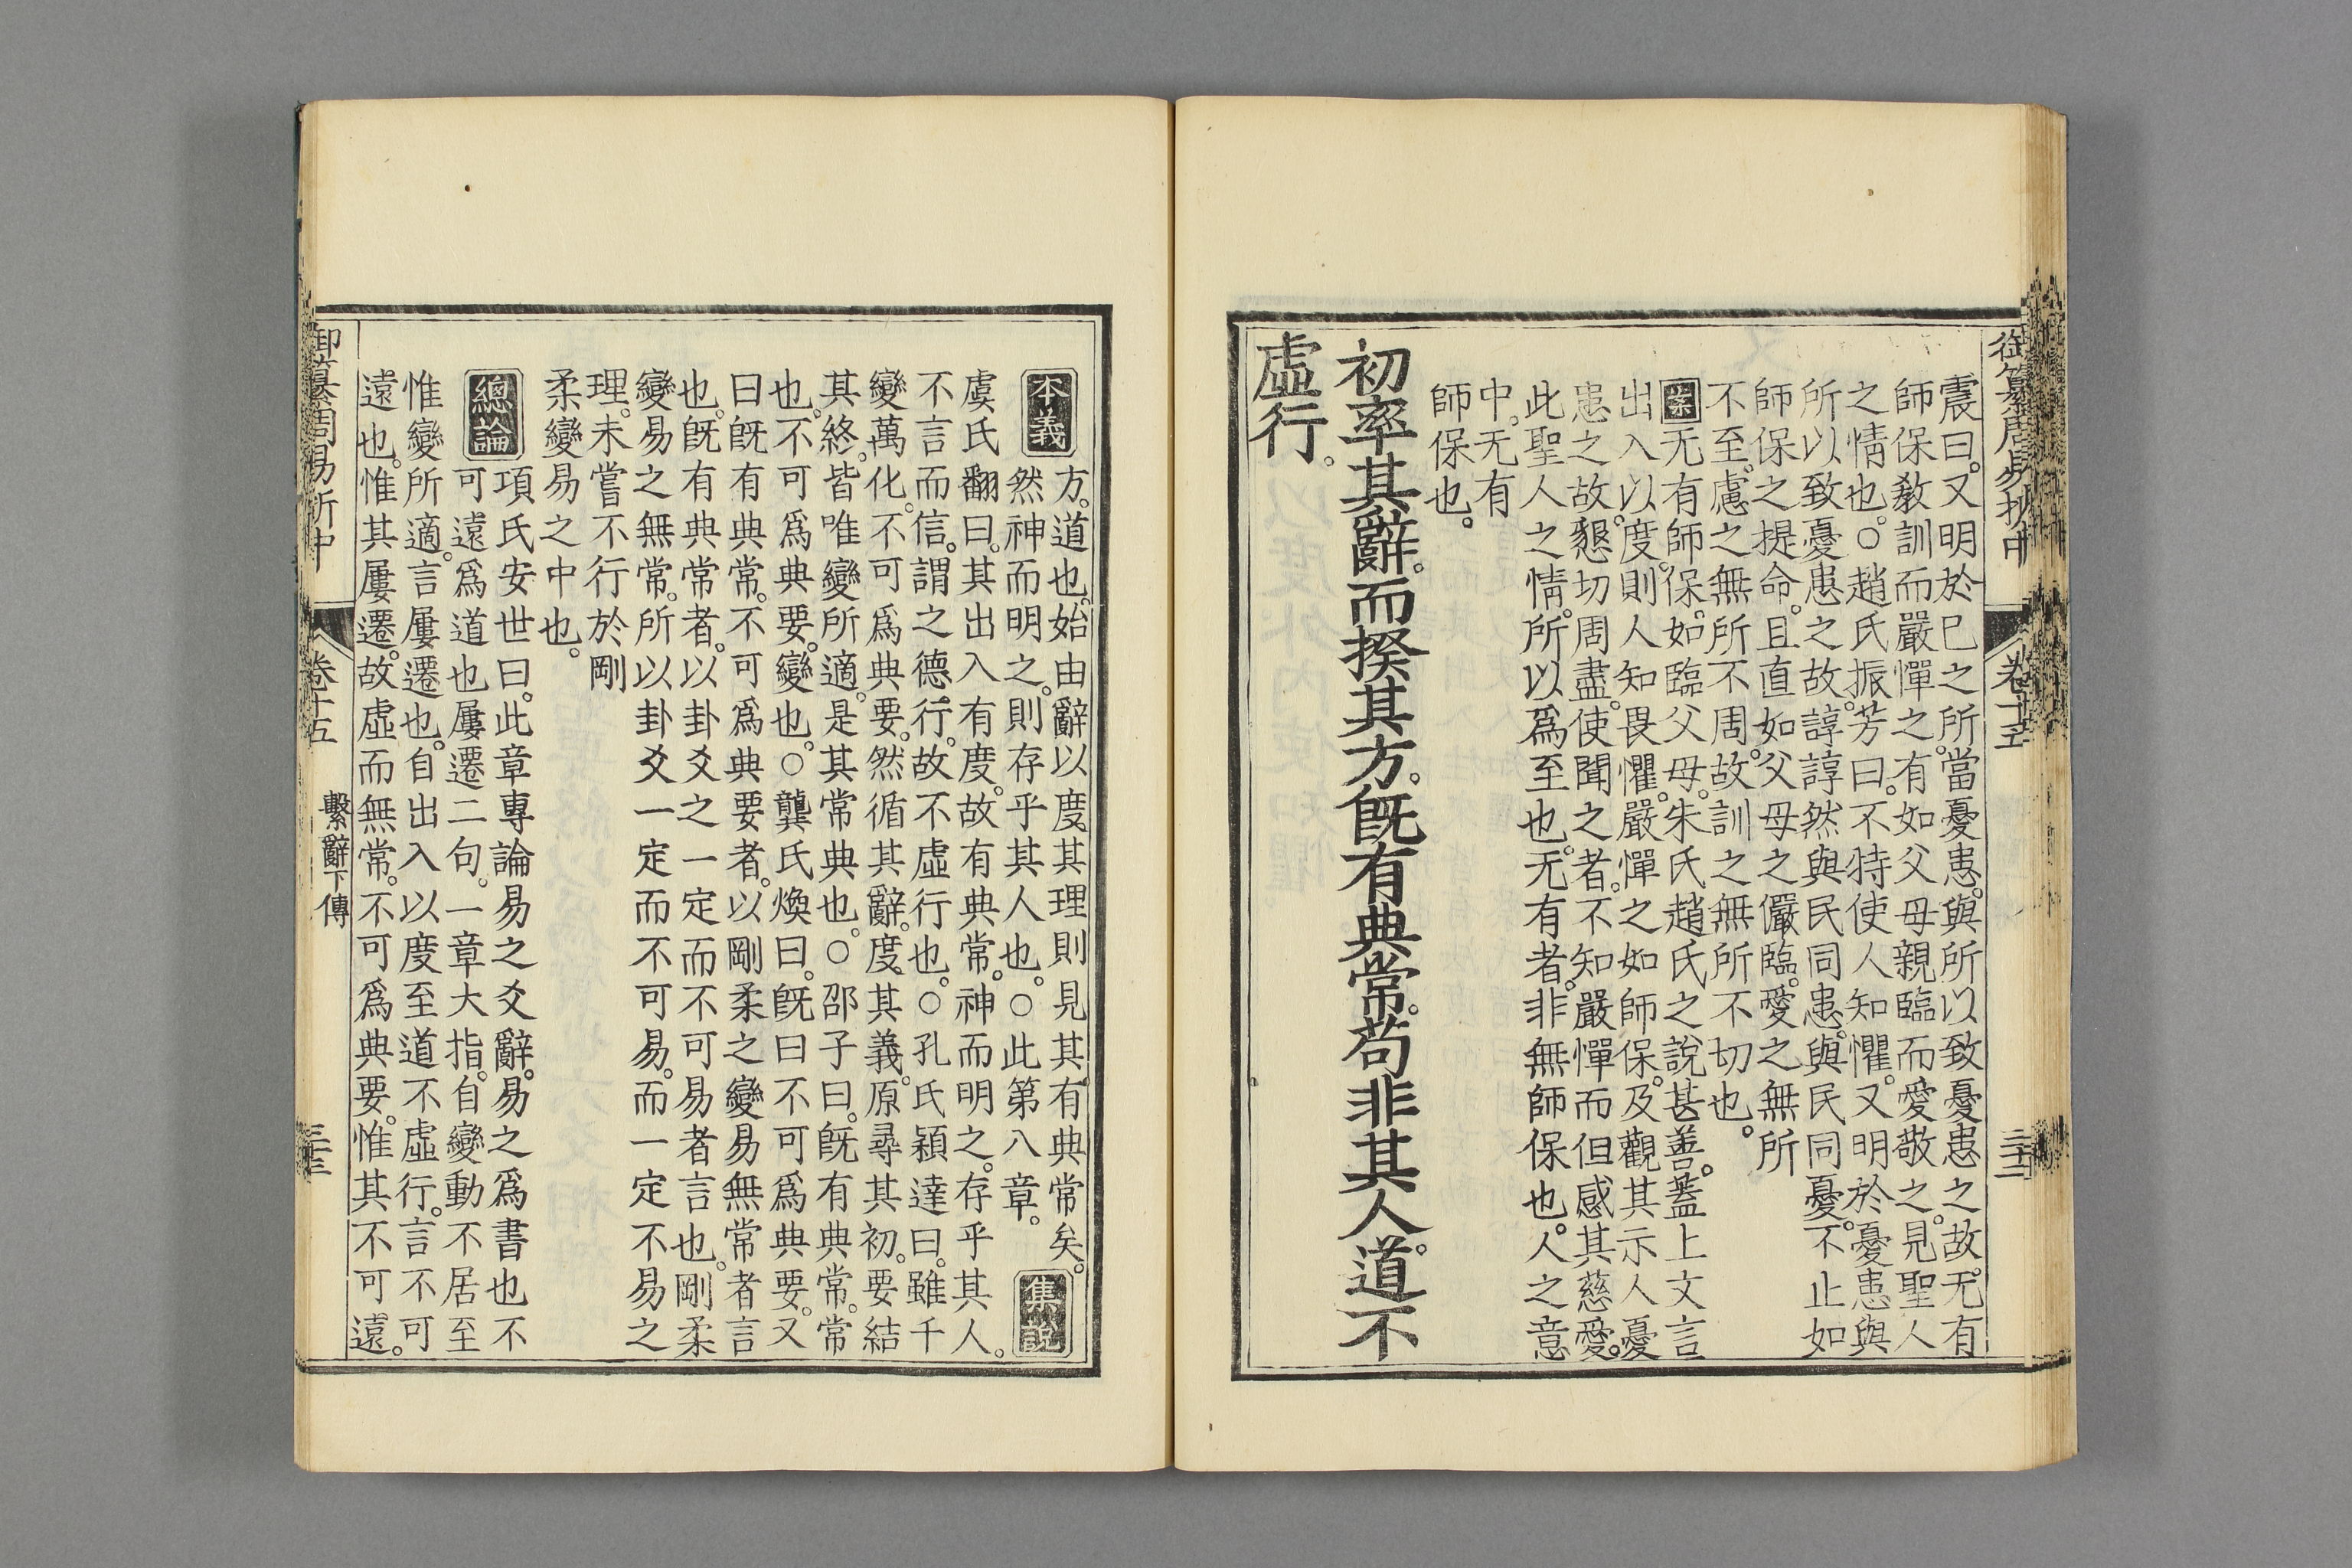 御纂周易折中　卷十五　三十二
震曰。又明於已之所當憂患。與所以致憂患之故。无有
師保教訓而嚴憚之。有如父母親臨而愛敬之。見聖人
之情也。○趙氏振芳曰。不特使人知懼。又明於憂患與
所以致憂患之故。諄諄然與民同患。與民同憂。不止如
師保之提命。且直如父母之儼臨。愛之無所
不至。慮之無所不周。故訓之無所不切也。
案无有師保。如臨父母。朱氏趙氏之說甚善。蓋上文言
出入以度。則人知畏懼。嚴憚之如師保。及觀其示人憂
患之故。懇切周盡。使聞之者。不知嚴憚而但感其慈愛。
此聖人之情。所以爲至也。无有者。非無師保也。人之意
中。无有
師保也。
初率其辭。而揆其方。旣有典常。苟非其人。道不
虛行。
本義　方。道也。始由辭以度其理則見其有典常矣。
然神而明之。則存乎其人也。○此第八章。　集說
虞氏翻曰。其出入有度。故有典常。神而明之。存乎其人。
不言而信。謂之德行。故不虛行也。○孔氏穎達曰。雖千
變萬化。不可爲典要。然循其辭。度其義。原尋其初。要結
其終。皆唯變所適。是其常典也。○邵子曰。旣有典常。常
也。不可爲典要。變也。○龔氏煥曰。旣曰不可爲典要。又
曰旣有典常。不可爲典要者。以剛柔之變易無常者言
也。旣有典常者。以卦爻之一定而不可易者言也。剛柔
變易之無常。所以卦爻一定而不可易。而一定不易之
理。未嘗不行於剛
柔變易之中也。
總論　項氏安世曰。此章專論易之爻辭。易之爲書也不
可遠。爲道也屢遷二句。一章大指。自變動不居至
惟變所適。言屢遷也。自出入以度至道不虛行。言不可
遠也。惟其屢遷。故虛而無常。不可爲典要。惟其不可遠。
御纂周易折中　卷十五　繫辭下傳　三十三